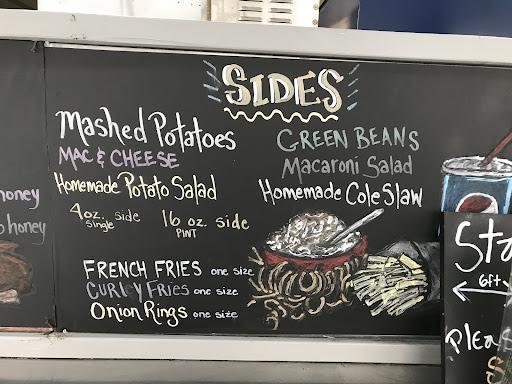 SIDES
Mashed Potatoes
MAC & CHEESE
Homemade Potato Salad
4oz. side 16 oz. side
single PINT
GREEN BEANS
Macaroni Salad
Homemade Cole Slaw
FRENCH FRIES one size
CURLY FRIES one size
Onion Rings one size
honey
honey
6ft
Pleas